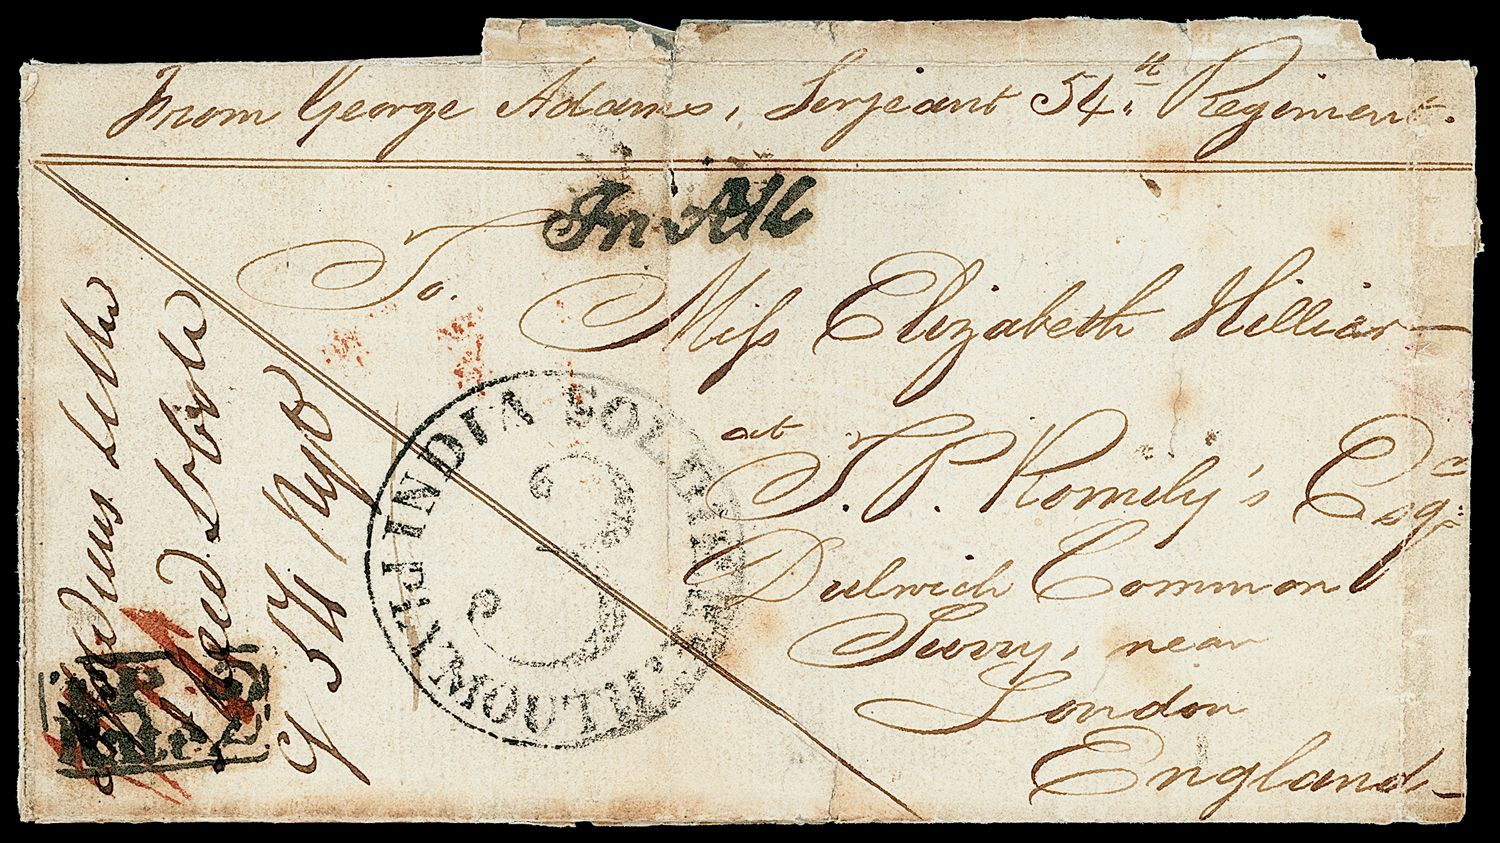 From George Adams, Serjeant 54.th Regiment.
In All
To.
Miss Elizabeth Hilliar
at
T. P. Romily's Esqr
Dulwich Common
Surry, near
London
England
INDIA SOLDIERS
PLYMOUTH
3
Letter
54 Regt